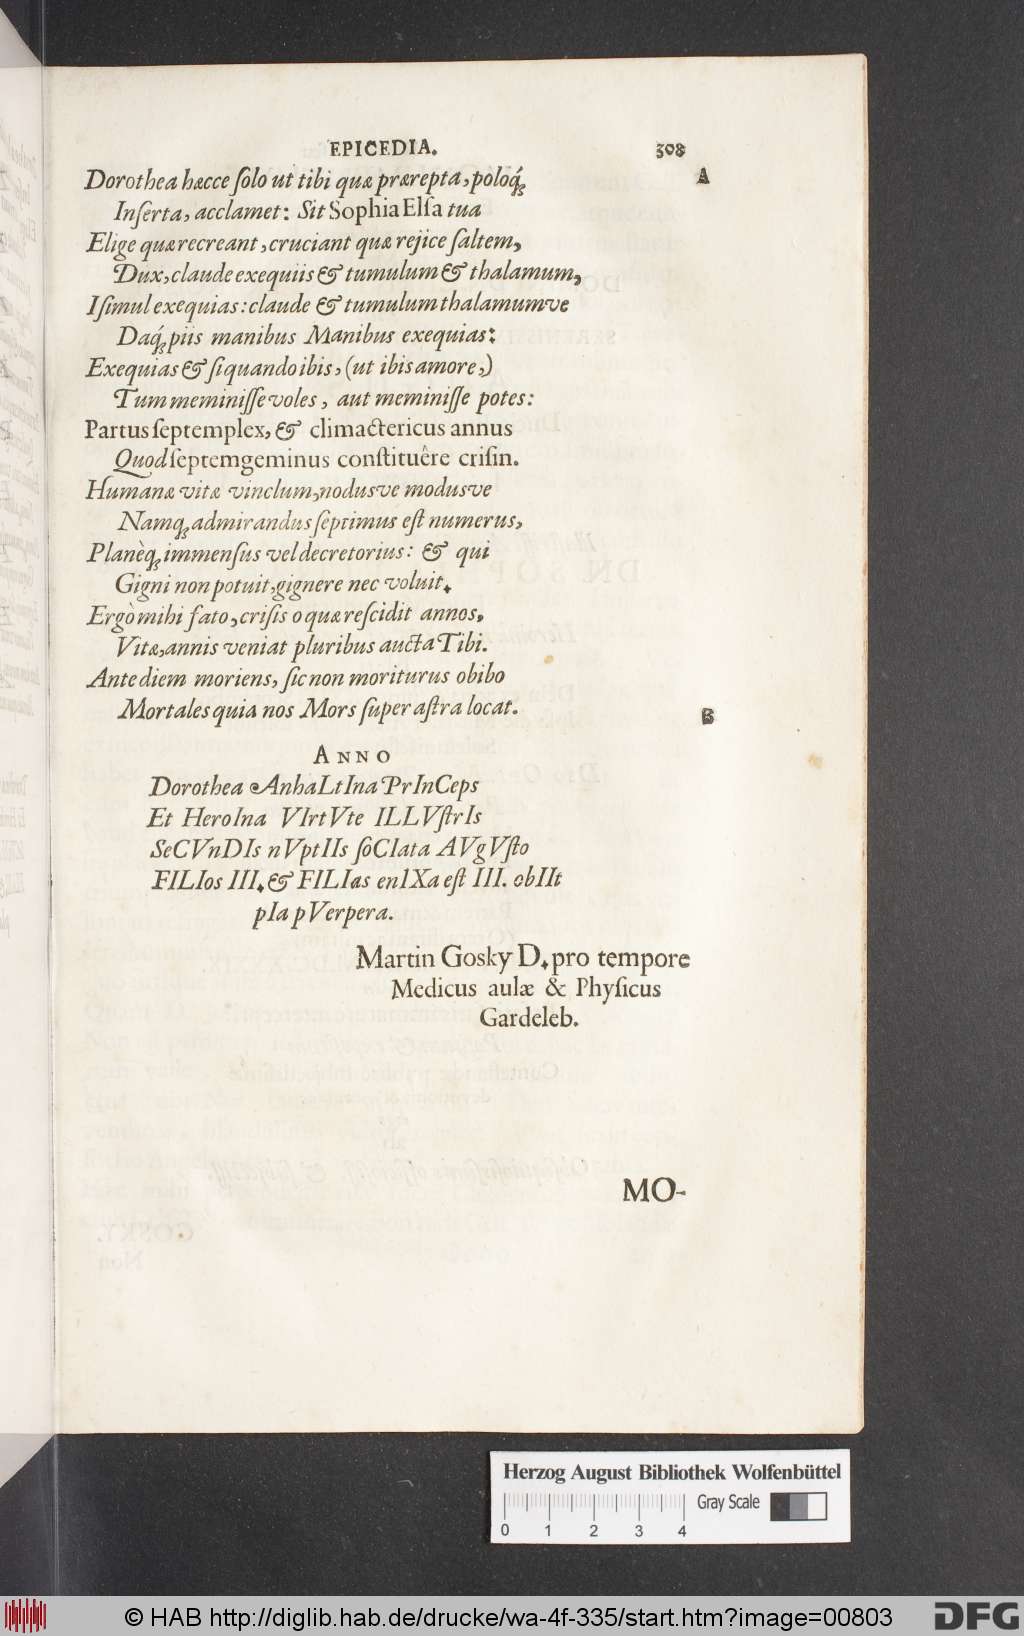 EPICEDIA. 308
Dorothea hæcce ſolo ut tibi quæ prærepta, poloq́;
A
Inſerta, acclamet: Sit Sophia Elſa tua
Elige quæ recreant, cruciant quæ rejice ſaltem,
Dux, claude exequiis & tumulum & thalamum,
I ſimul exequias: claude & tumulum thalamumve
Daq́; piis manibus Manibus exequias:
Exequias & ſi quando ibis, (ut ibis amore,)
Tum meminiſſe voles, aut meminiſſe potes:
Partus ſeptemplex, & climactericus annus
Quod ſeptemgeminus conſtituêre criſin.
Humanæ vitæ vinclum, nodusve modusve
Namq; admirandus ſeptimus eſt numerus,
Planèq; immenſus vel decretorius: & qui
Gigni non potuit, gignere nec voluit.
Ergò mihi fato, criſis o quæ reſcidit annos,
Vitæ, annis veniat pluribus aucta Tibi.
Ante diem moriens, ſic non moriturus obibo
Mortales quia nos Mors ſuper aſtra locat.
B
ANNO
Dorothea AnhaLtIna PrInCeps
Et HeroIna VIrtVte ILLVſtrIs
SeCVnDIs nVptIIs ſoCIata AVgVſto
FILIos III. & FILIas enIXa eſt III. obIIt
pIa pVerpera.
Martin Gosky D. pro tempore
Medicus aulæ & Phyſicus
Gardeleb.
MO-
Herzog August Bibliothek Wolfenbüttel
Gray Scale
0 1 2 3 4
© HAB http://diglib.hab.de/drucke/wa-4f-335/start.htm?image=00803
DFG